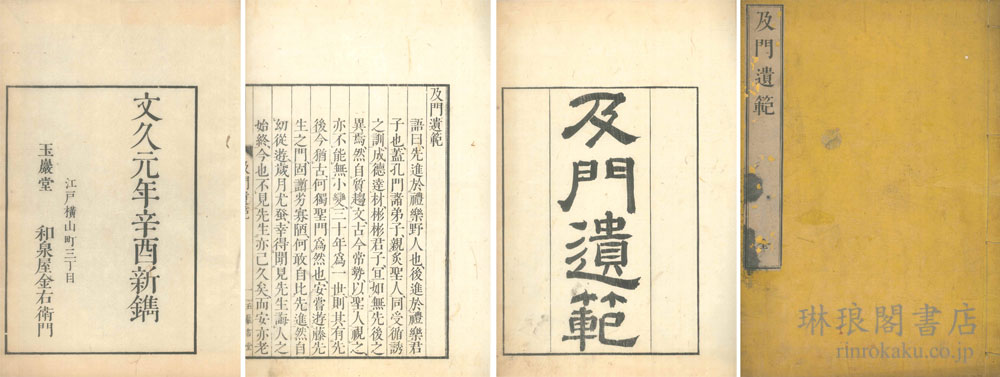 及門遺範 全
琳琅閣書店
rinrokaku.co.jp
及門遺範
及門遺範
語曰先進於禮樂野人也後進於禮樂君
子也蓋孔門諸弟子親炙聖人同受循誘
之訓成德達材彬彬君子宜如無先後之
異焉然自質趨文古今常勢以聖人視之
亦不能無小變三十年爲一世則其有先
後今猶古何獨聖門爲然也安嘗遊藤先
生之門固謭劣寡陋何敢自比先進然自
幼從遊歲月尤幸得聞見先生誨人之
始終今也不見先生亦已久矣而安亦老
文久元年辛酉新鐫
江戸橫山町三丁目
玉巖堂 和泉屋金右衛門